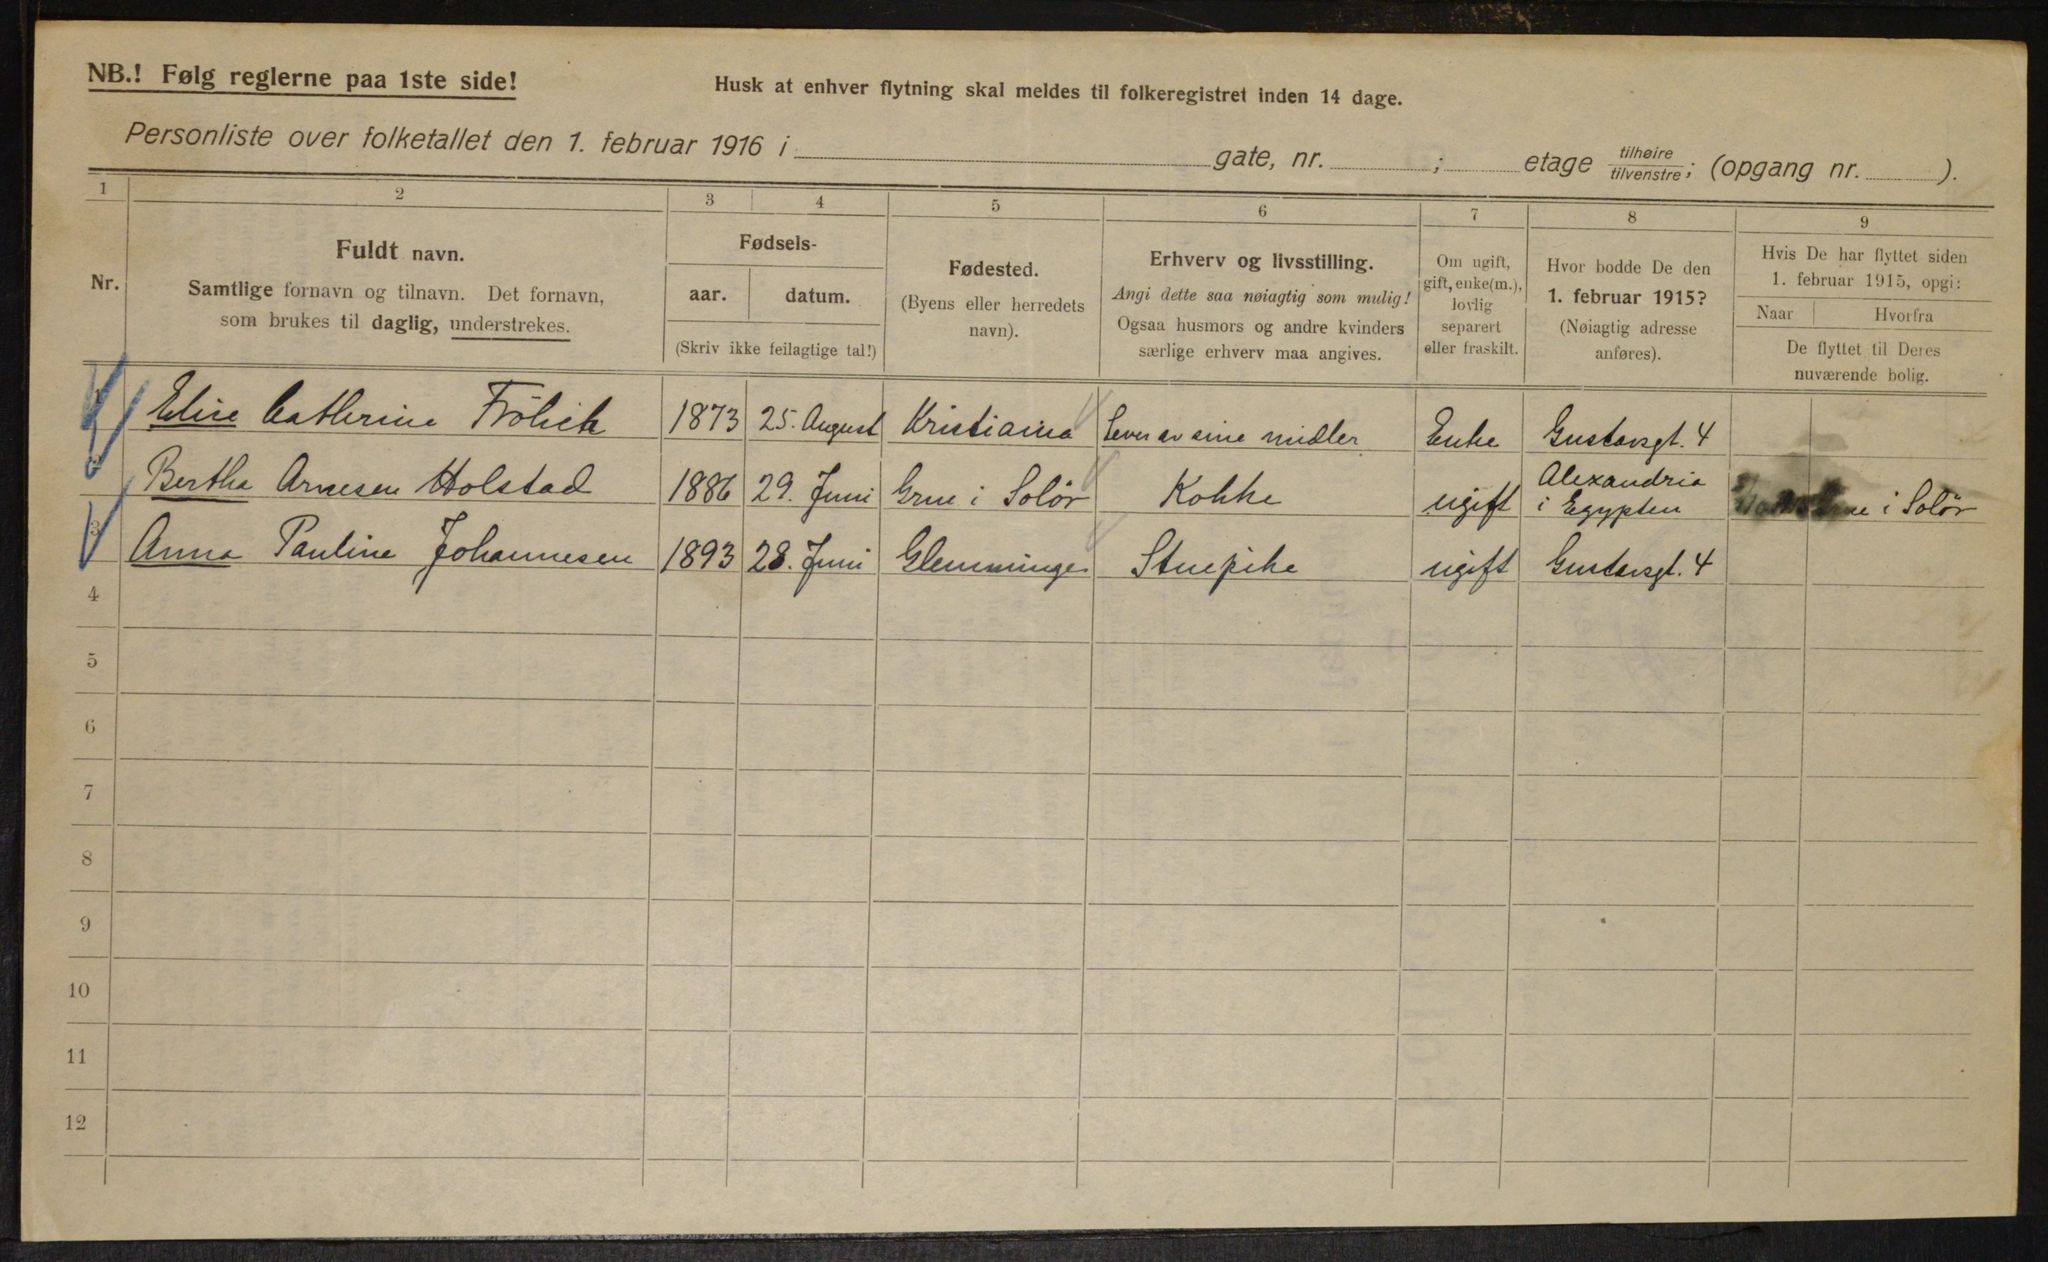 NB.! Følg reglerne paa 1ste side!
Husk at enhver flytning skal meldes til folkeregistret inden 14 dage.
Personliste over folketallet den 1. februar 1916 i gate, nr. ; etage tilhøire tilvenstre; (opgang nr. ).
1 2 3 4 5 6 7 8 9
Nr.
Fuldt navn.
Samtlige fornavn og tilnavn. Det fornavn,
som brukes til daglig, understrekes.
Fødsels-
aar. datum.
(Skriv ikke feilagtige tal!)
Fødested.
(Byens eller herredets
navn).
Erhverv og livsstilling.
Angi dette saa nøiagtig som mulig!
Ogsaa husmors og andre kvinders
særlige erhverv maa angives.
Om ugift,
gift, enke(m.),
lovlig
separert
eller fraskilt.
Hvor bodde De den
1. februar 1915?
(Nøiagtig adresse
anføres).
Hvis De har flyttet siden
1. februar 1915, opgi:
Naar Hvorfra
De flyttet til Deres
nuværende bolig.
Elise Catherine Frölich 1873 25. August Kristiania Lever av sine midler Enke Gustavsgt. 4
Bertha Arnesen Holstad 1886 29. Juni Grue i Solör Kokke ugift Alexandria i Egypten Grue i Solör
3 Anna Pauline Johannesen 1893 28. Juni Glemminge Stuepike ugift Gustavsgt. 4
4
5
6
7
8
9
10
11
12